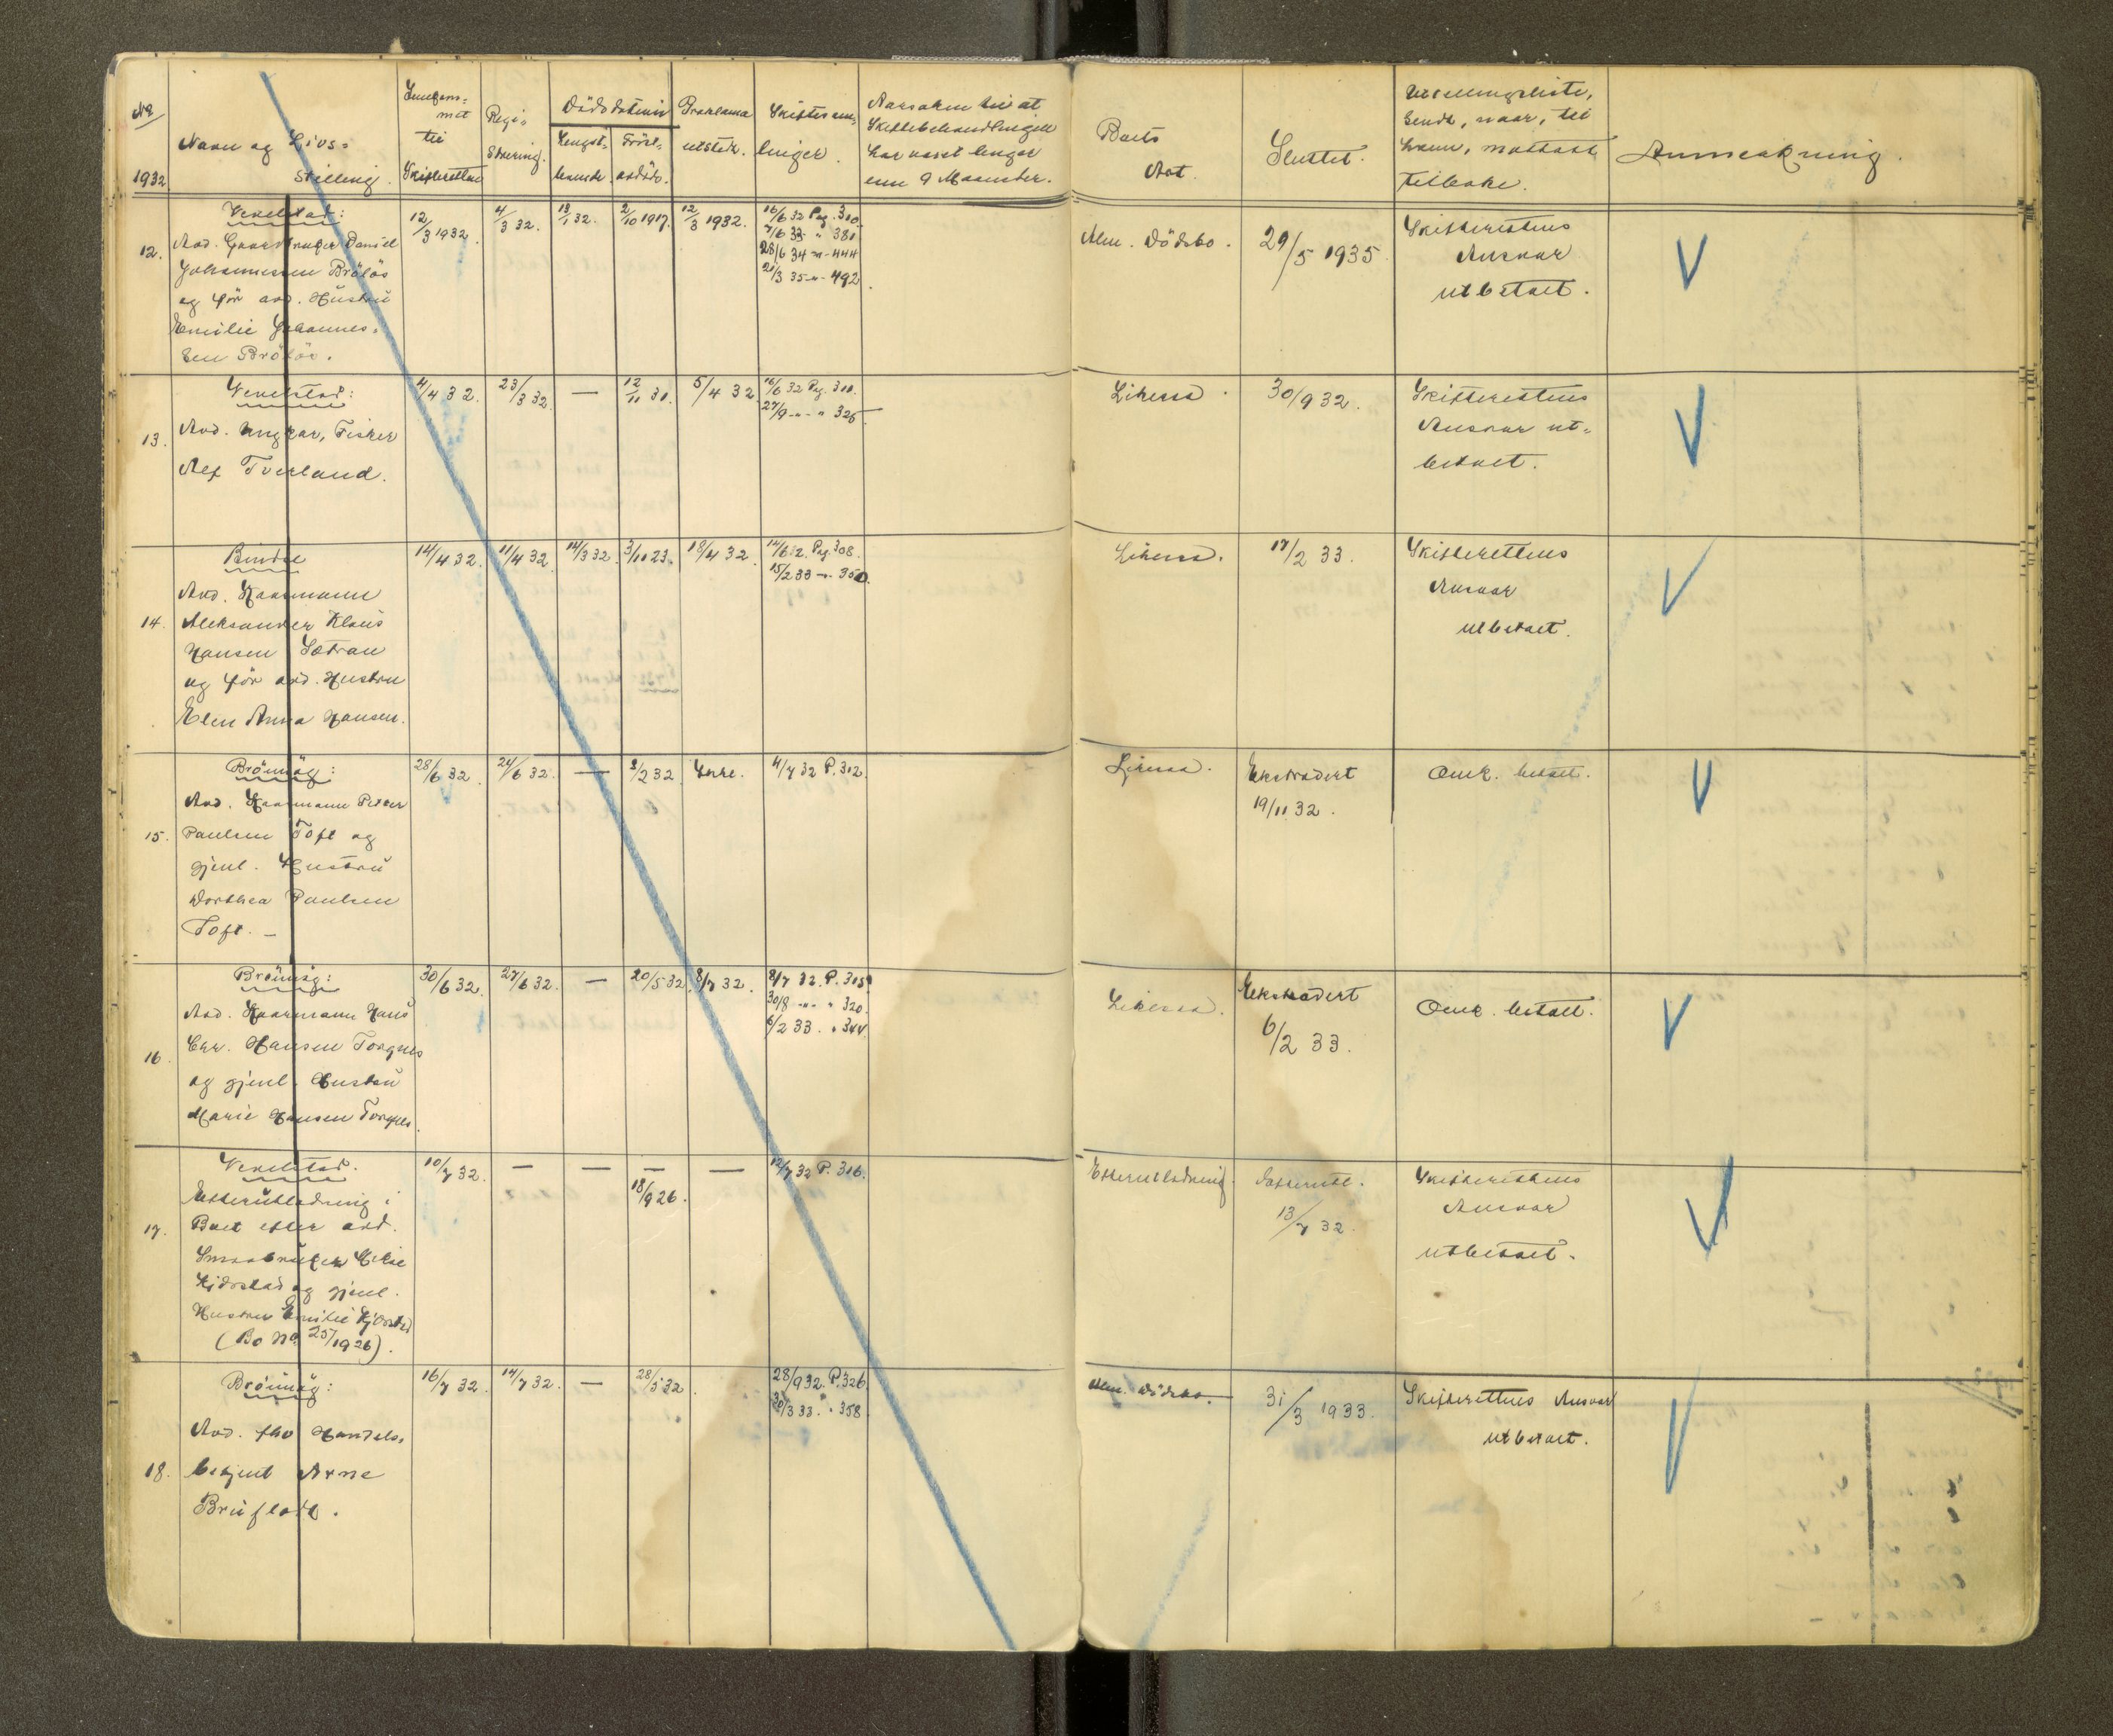 No
1932
Navn og Livs=
stilling.
til
Skifteretten
Regi=
strering.
Dödsdatoen
Lengst=
levende.
Först=
avdöde.
Proklama
utstedt.
Skiftesam=
linger.
Aarsaken til at
Skiftebehandlingen
har varet lenger
enn 9 Maaneder.
Boets
Art.
Sluttet.
sendt, naar, til
hvem, mottatt
tilbake.
Anmerkning.
12.
Vevelstad:
Avd. Gaardbruker Daniel
Johannessen Bröløs
og för avd. Hustru
Emilie Johannes=
sen Bröløs.
12/3 1932.
4/3 32.
13/1 32.
2/10 1917.
12/3 1932.
16/6 32 Pag. 310.
7/6 33 " 381
28/6 34 -"- 444
21/3 35 -"- 492.
Alm. Dödsbo.
29/5 1935.
Skifterettens
Ansvar
utbetalt.
13.
Vevelstad:
Avd. Ungkar, Fisker
Alf Tverland.
4/4 32.
23/3 32.
—
12/11 31.
5/4 32.
16/6 32 Pag. 311.
27/9 -"- " 325
Likesaa.
30/9 32.
Skifterettens
Ansvar ut=
betalt.
14.
Bindal
Avd. Kaarmann
Aleksander Klaus
Hansen Sætran
og för avd. Hustru
Elen Anna Hansen.
14/4 32.
11/4 32.
14/3 32.
3/11 23.
18/4 32.
14/6 32. Pag. 308.
15/2 33 -"- 350.
Likesaa.
17/2 33.
Skifterettens
Ansvar
utbetalt.
15.
Brönnöy:
Avd. Kaarmann Petter
Paulsen Toft og
gjenl. Hustru
Dorthea Paulsen
Toft. —
28/6 32.
24/6 32.
—
2/2 32
Ikke.
4/7 32 P. 312.
Likesaa.
Ekstradert
19/11 32.
Omk. betalt.
16.
Brönnöy:
Avd. Kaarmann Hans
Chr. Hansen Torgnes
og gjenl. Hustru
Marie Hansen Torgnes.
30/6 32.
27/6 32.
—
20/5 32.
8/7 32.
8/7 32. P. 315
30/8 -"- " 320.
6/2 33. " 344
Likesaa.
Ekstradert
6/2 33.
Omk. betalt.
17.
Vevelstad.
Efterutlodning i
Boet efter avd.
Smaabruker
og gjenl.
Hustru Emilie
(Bo No. 25/1926).
10/7 32.
—
—
—
18/9 26.
—
12/7 32 P. 316.
Efterutlodning.
13/7 32.
Skifterettens
Ansvar
utbetalt.
18.
Brönnöy:
Avd. fhv Handels=
betjent Arne
Bruflott.
16/7 32.
14/7 32.
—
28/5 32.
28/9 32. P. 326
30/3 33. " 358
Alm. Dödsbo.
31/3 1933.
Skifterettens Ansvar
utbetalt.